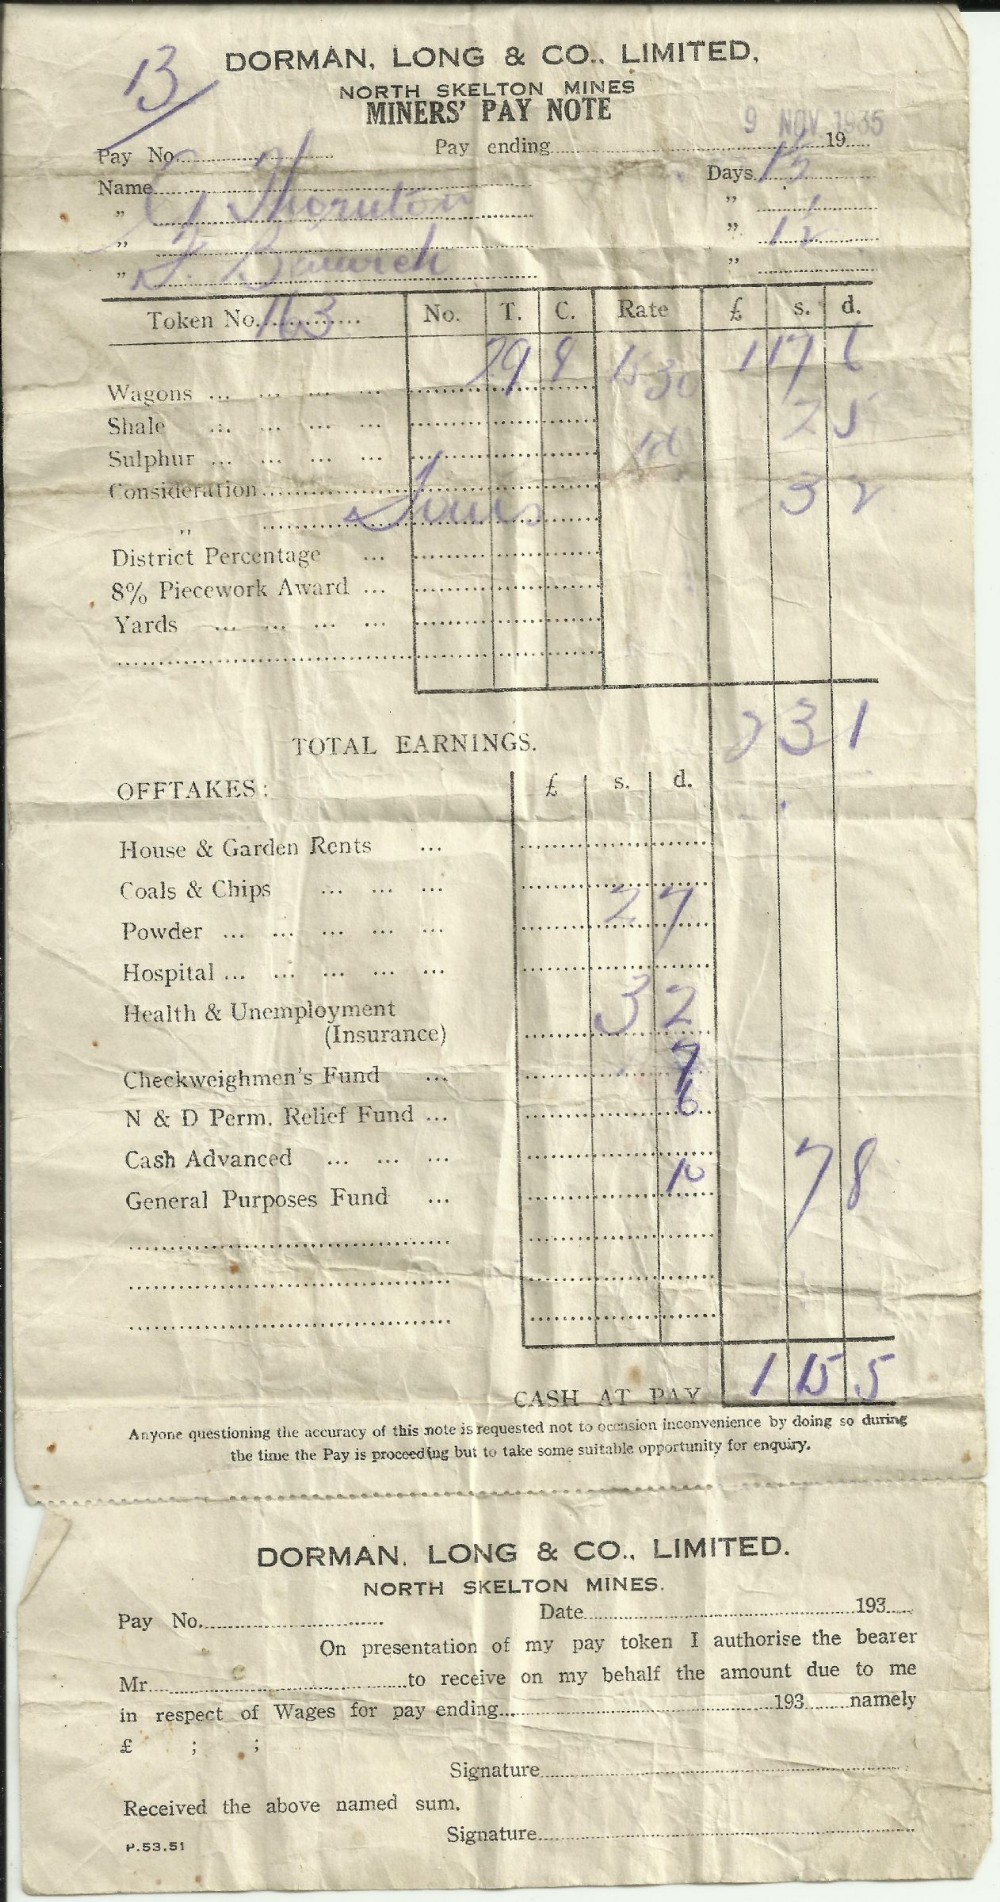 13/
DORMAN, LONG & CO., LIMITED,
NORTH SKELTON MINES
MINERS' PAY NOTE
9 NOV 1935
Pay No. Pay ending 19
Name Days 1½
" G Thornton "
" " 1½
" "
Token No. 163 No. T. C. Rate £ s. d.
Wagons ... ... ... ... 29 9 15.30 1 17 6
Shale ... ... ... ... 2 5
Sulphur ... ... ... ... 1d
Consideration 3 2
"
District Percentage ...
8% Piecework Award ...
Yards ... ... ... ...
TOTAL EARNINGS. 2 3 1
OFFTAKES: £ s. d.
House & Garden Rents ...
Coals & Chips ... ... ...
Powder ... ... ... ... ... 2 7
Hospital ... ... ... ... ...
Health & Unemployment
(Insurance) 3 2
Checkweighmen's Fund ... 7
N & D Perm. Relief Fund ... 6
Cash Advanced ... ... ...
General Purposes Fund ... 10 7 8
CASH AT PAY 1 15 5
Anyone questioning the accuracy of this note is requested not to occasion inconvenience by doing so during
the time the Pay is proceeding but to take some suitable opportunity for enquiry.
DORMAN, LONG & CO., LIMITED.
NORTH SKELTON MINES.
Pay No. Date 193
On presentation of my pay token I authorise the bearer
Mr. to receive on my behalf the amount due to me
in respect of Wages for pay ending 193 namely
£ ; ;
Signature
Received the above named sum.
Signature
P.53.51